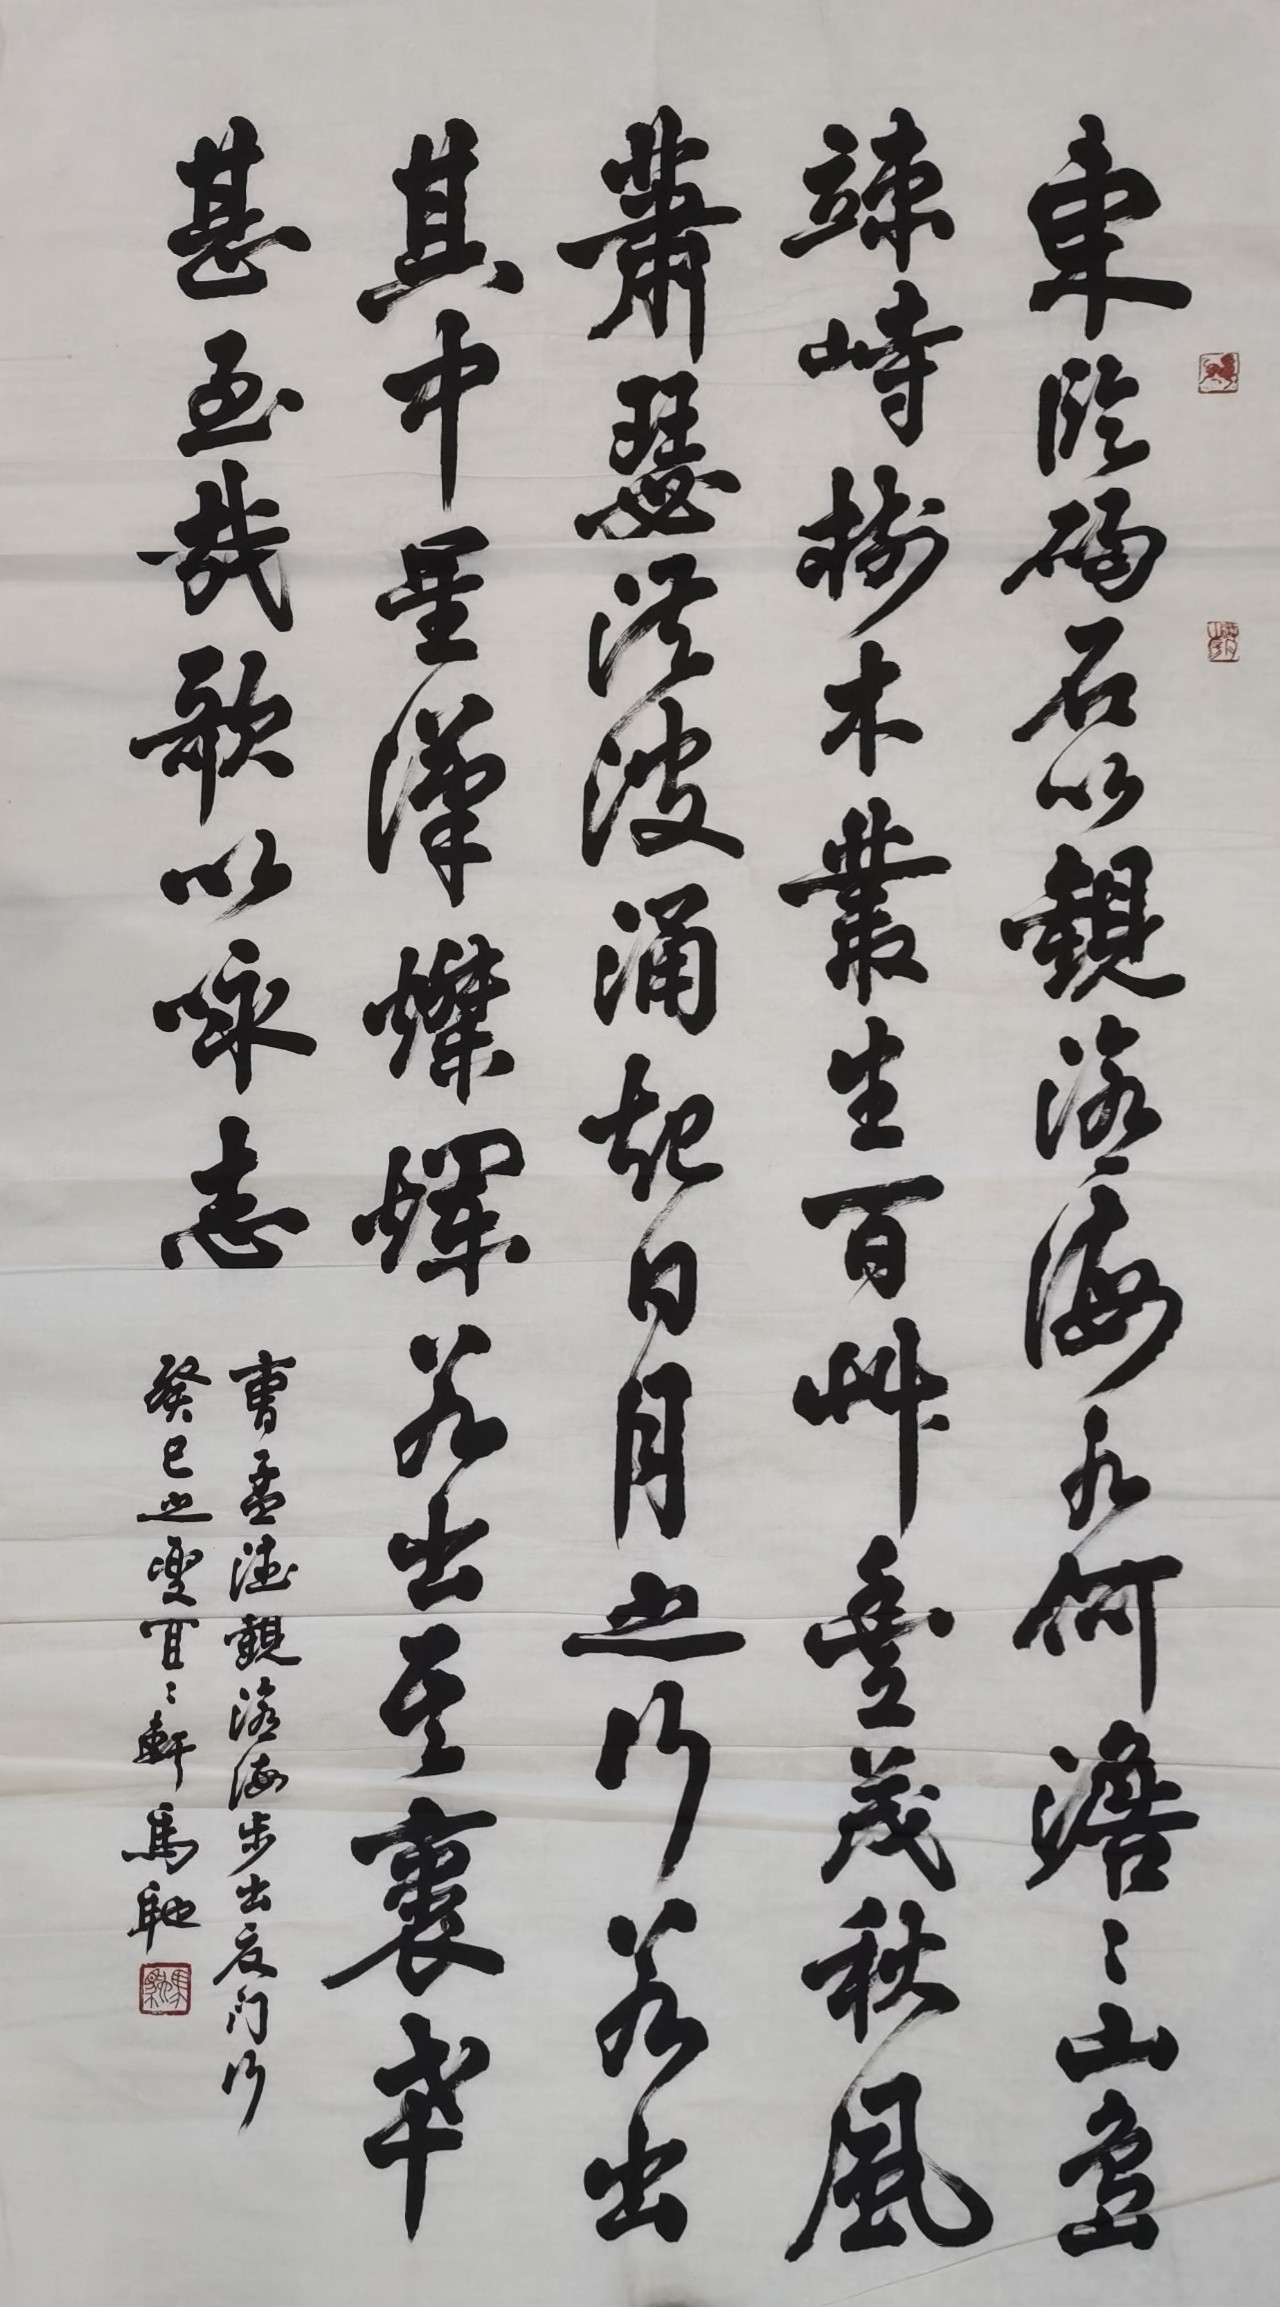 東臨碣石以觀滄海水何澹〻山島
竦峙樹木叢生百艸豐茂秋風
蕭瑟洪波涌起日月之行若出
其中星漢燦爛若出其裏幸
甚至哉歌以咏志
曹孟德觀滄海步出夏门行
癸巳之夏百〻軒馬馳